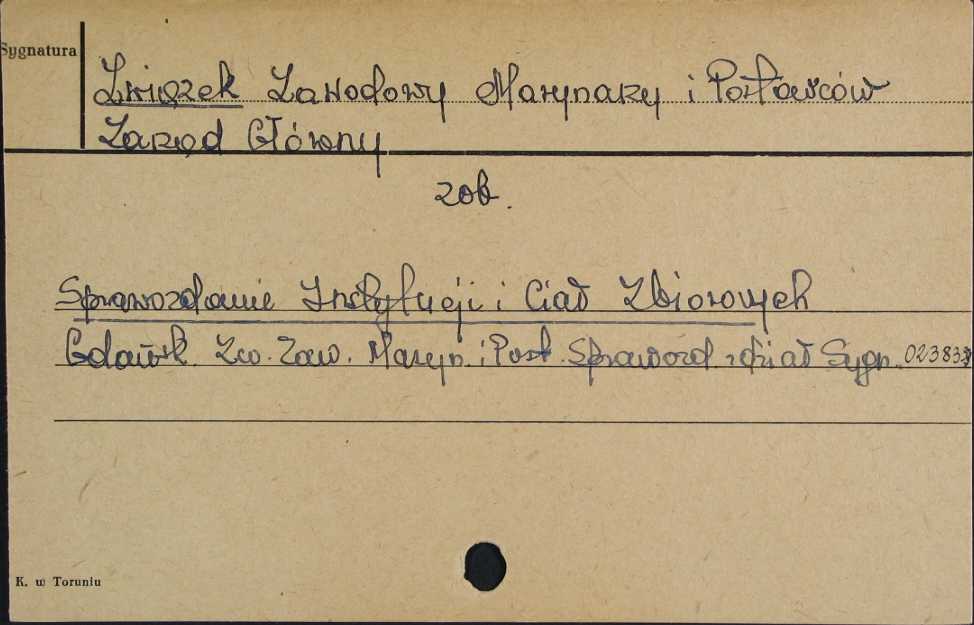 Sygnatura
Związek Zawodowy Marynarzy i Portowców
Zarząd Główny
zob.
Sprawozdanie Instytucji i Ciał Zbiorowych
Gdańsk. Zw. Zaw. Maryn. i Port. Sprawozd. z dział Sygn. 02383
K. w Toruniu